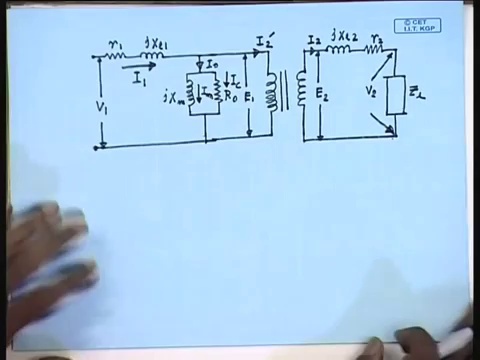 © CET
I.I.T. KGP
r1 jxl1 I2' I2 jxl2 r2
I0
I1
V1 jxm Im Ic R0 E1 E2 V2 ZL